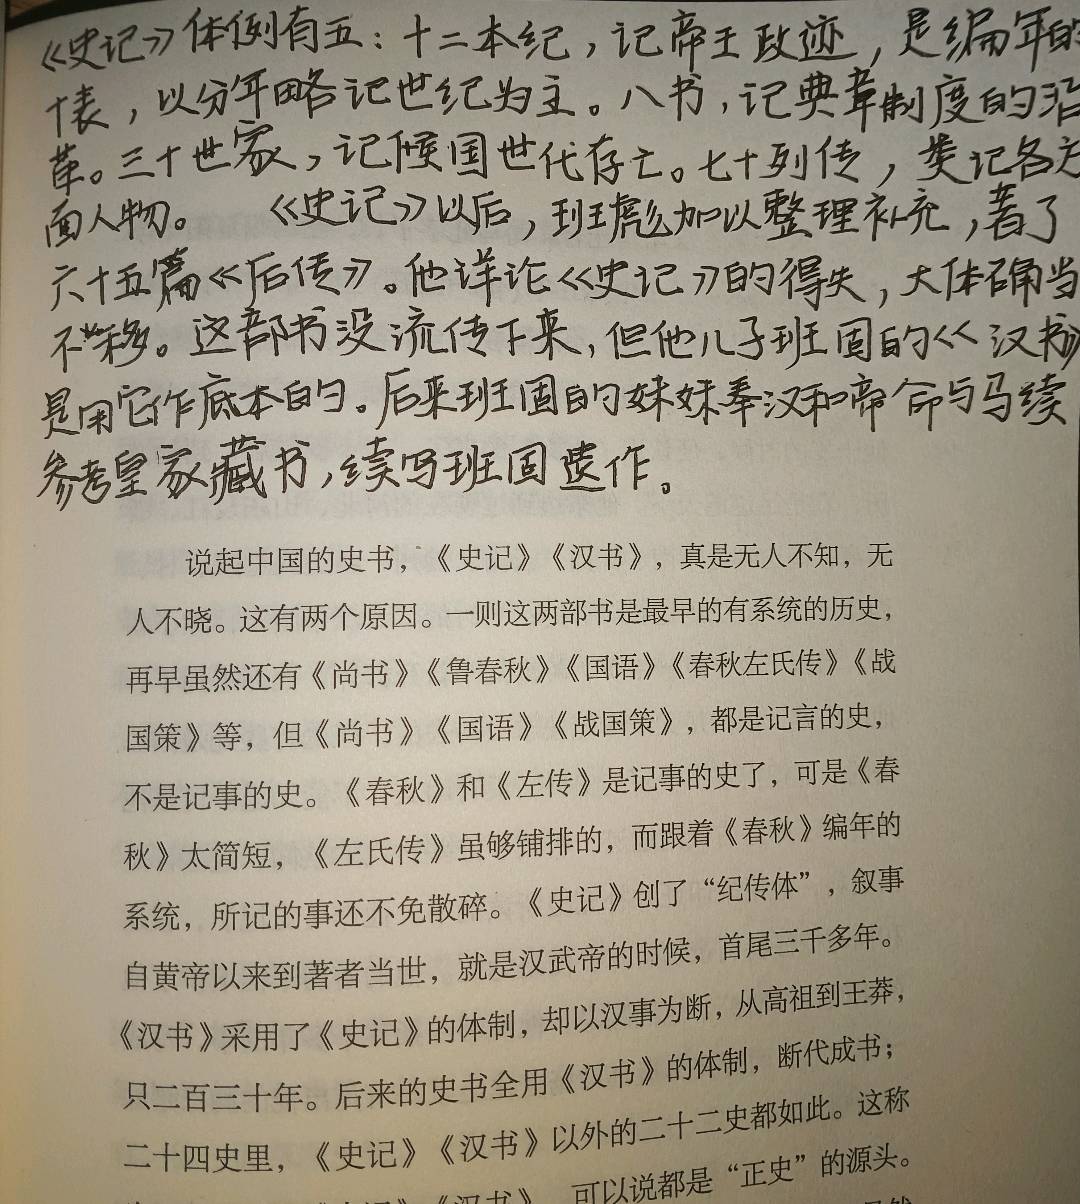 《史记》体例有五：十二本纪，记帝王政迹，是编年的
十表，以分年略记世纪为主。八书，记典章制度的沿
革。三十世家，记候国世代存亡。七十列传，类记各方
面人物。　《史记》以后，班彪加以整理补充，著了
六十五篇《后传》。他详论《史记》的得失，大体确当
不移。这部书没流传下来，但他儿子班固的《汉书》
是用它作底本的。后来班固的妹妹奉汉和帝命与马续
参考皇家藏书，续写班固遗作。
说起中国的史书，《史记》《汉书》，真是无人不知，无
人不晓。这有两个原因。一则这两部书是最早的有系统的历史，
再早虽然还有《尚书》《鲁春秋》《国语》《春秋左氏传》《战
国策》等，但《尚书》《国语》《战国策》，都是记言的史，
不是记事的史。《春秋》和《左传》是记事的史了，可是《春
秋》太简短，《左氏传》虽够铺排的，而跟着《春秋》编年的
系统，所记的事还不免散碎。《史记》创了“纪传体”，叙事
自黄帝以来到著者当世，就是汉武帝的时候，首尾三千多年。
《汉书》采用了《史记》的体制，却以汉事为断，从高祖到王莽，
只二百三十年。后来的史书全用《汉书》的体制，断代成书；
二十四史里，《史记》《汉书》以外的二十二史都如此。这称
《汉书》，可以说都是“正史”的源头。